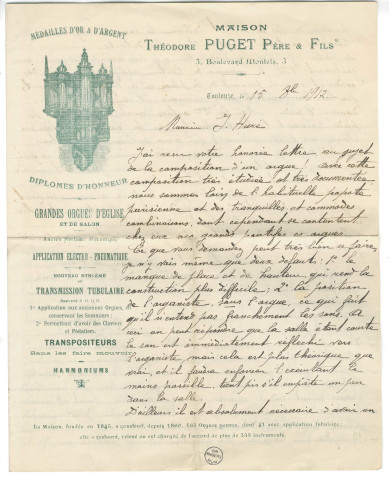 MÉDAILLES D'OR & D'ARGENT
DIPLOMES D'HONNEUR
GRANDES ORGUES D'EGLISE
ET DE SALON
APPLICATION ELECTRO-PNEUMATIQUE
NOUVEAU SYSTÈME
DE
TRANSMISSION TUBULAIRE
1° Application aux anciennes Orgues,
conservant les Sommiers;
2° Permettant d'avoir des Claviers
et Pédaliers.
TRANSPOSITEURS
Sans les faire mouvoir
HARMONIUMS
MAISON
THÉODORE PUGET PÈRE & FILS
3, Boulevard Montels, 3
Toulouse, le 15 Xbre 1912
Monsieur J. Huré
J'ai reçu votre honorée lettre au sujet
de la composition d'un orgue; avec cette
composition très étudiée et très documentée
nous sommes loin de l'habituelle
parisienne et des tranquilles et commodes
continuations, dont cependant se contentent
chez eux nos grands pontifes es orgues.
Ce que vous demandez peut très bien se faire,
je n'y vois même que deux défauts: 1° le
manque de place et de hauteur qui rend la
construction plus difficile; 2° la position
de l'organiste sous l'orgue, ce qui fait
qu'il n'entend pas franchement les sons. A
ceci on peut répondre que la salle étant courte
le son est immédiatement réfléchi vers
l'organiste, mais cela est plus théorique que
vrai, et il faudra enfoncer l'exécutant le
moins possible, tant pis s'il empiète un peu
dans la salle.
D'ailleurs il est absolument nécessaire d'avoir un
La Maison, fondée en 1845, a construit, depuis 1860, 350 Orgues neuves, dont 41 avec application tubulaire;
elle a restauré, relevé ou est chargée de l'accord de plus de 500 instruments.